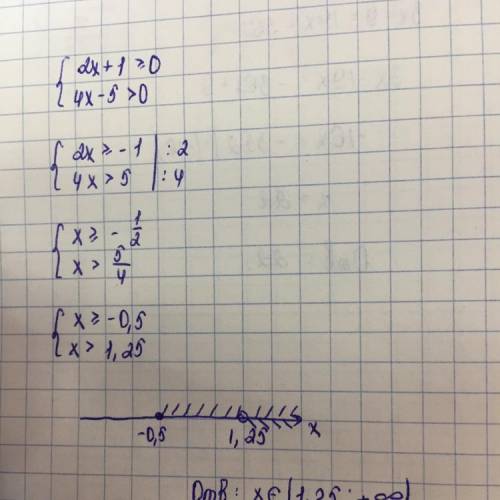 { 2x+1 ≥ 0
{ 4x-5 > 0
{ 2x ≥ -1 | : 2
{ 4x > 5 | : 4
{ x ≥ - 1/2
{ x > 5/4
{ x ≥ -0,5
{ x > 1,25
-0,5 1,25 x
Отв: x∈(1,25; +∞)